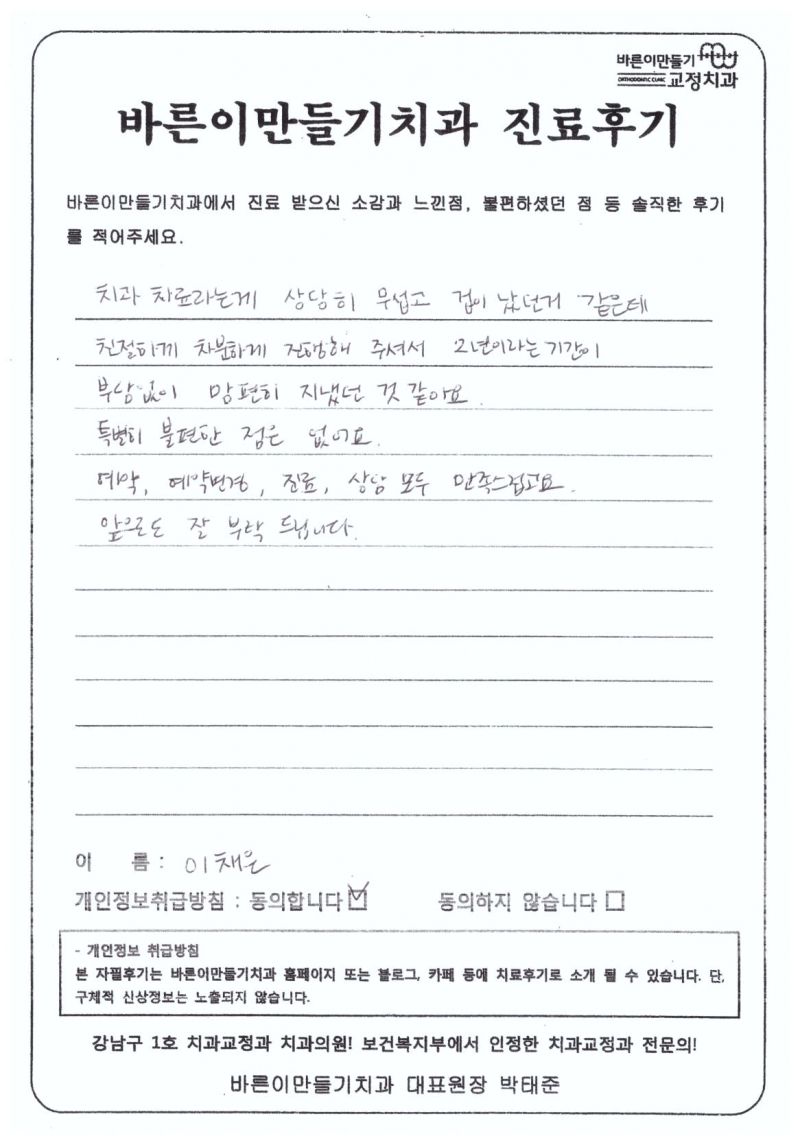 바른이만들기
ORTHODONTIC CLINIC 교정치과
바른이만들기치과 진료후기
바른이만들기치과에서 진료 받으신 소감과 느낀점, 불편하셨던 점 등 솔직한 후기
를 적어주세요.
치과 치료라는게 상당히 무섭고 겁이 났던거 같은데
친절하게 차분하게 진행해 주셔서 2년이라는 기간이
부담없이 맘편히 지냈던 것 같아요.
특별히 불편한 점은 없어요.
예약, 예약변경, 진료, 상담 모두 만족스럽고요.
앞으로도 잘 부탁 드립니다.
이 름 : 이채은
개인정보취급방침 : 동의합니다 ☑ 동의하지 않습니다 □
- 개인정보 취급방침
본 자필후기는 바른이만들기치과 홈페이지 또는 블로그, 카페 등에 치료후기로 소개 될 수 있습니다. 단,
구체적 신상정보는 노출되지 않습니다.
강남구 1호 치과교정과 치과의원! 보건복지부에서 인정한 치과교정과 전문의!
바른이만들기치과 대표원장 박태준